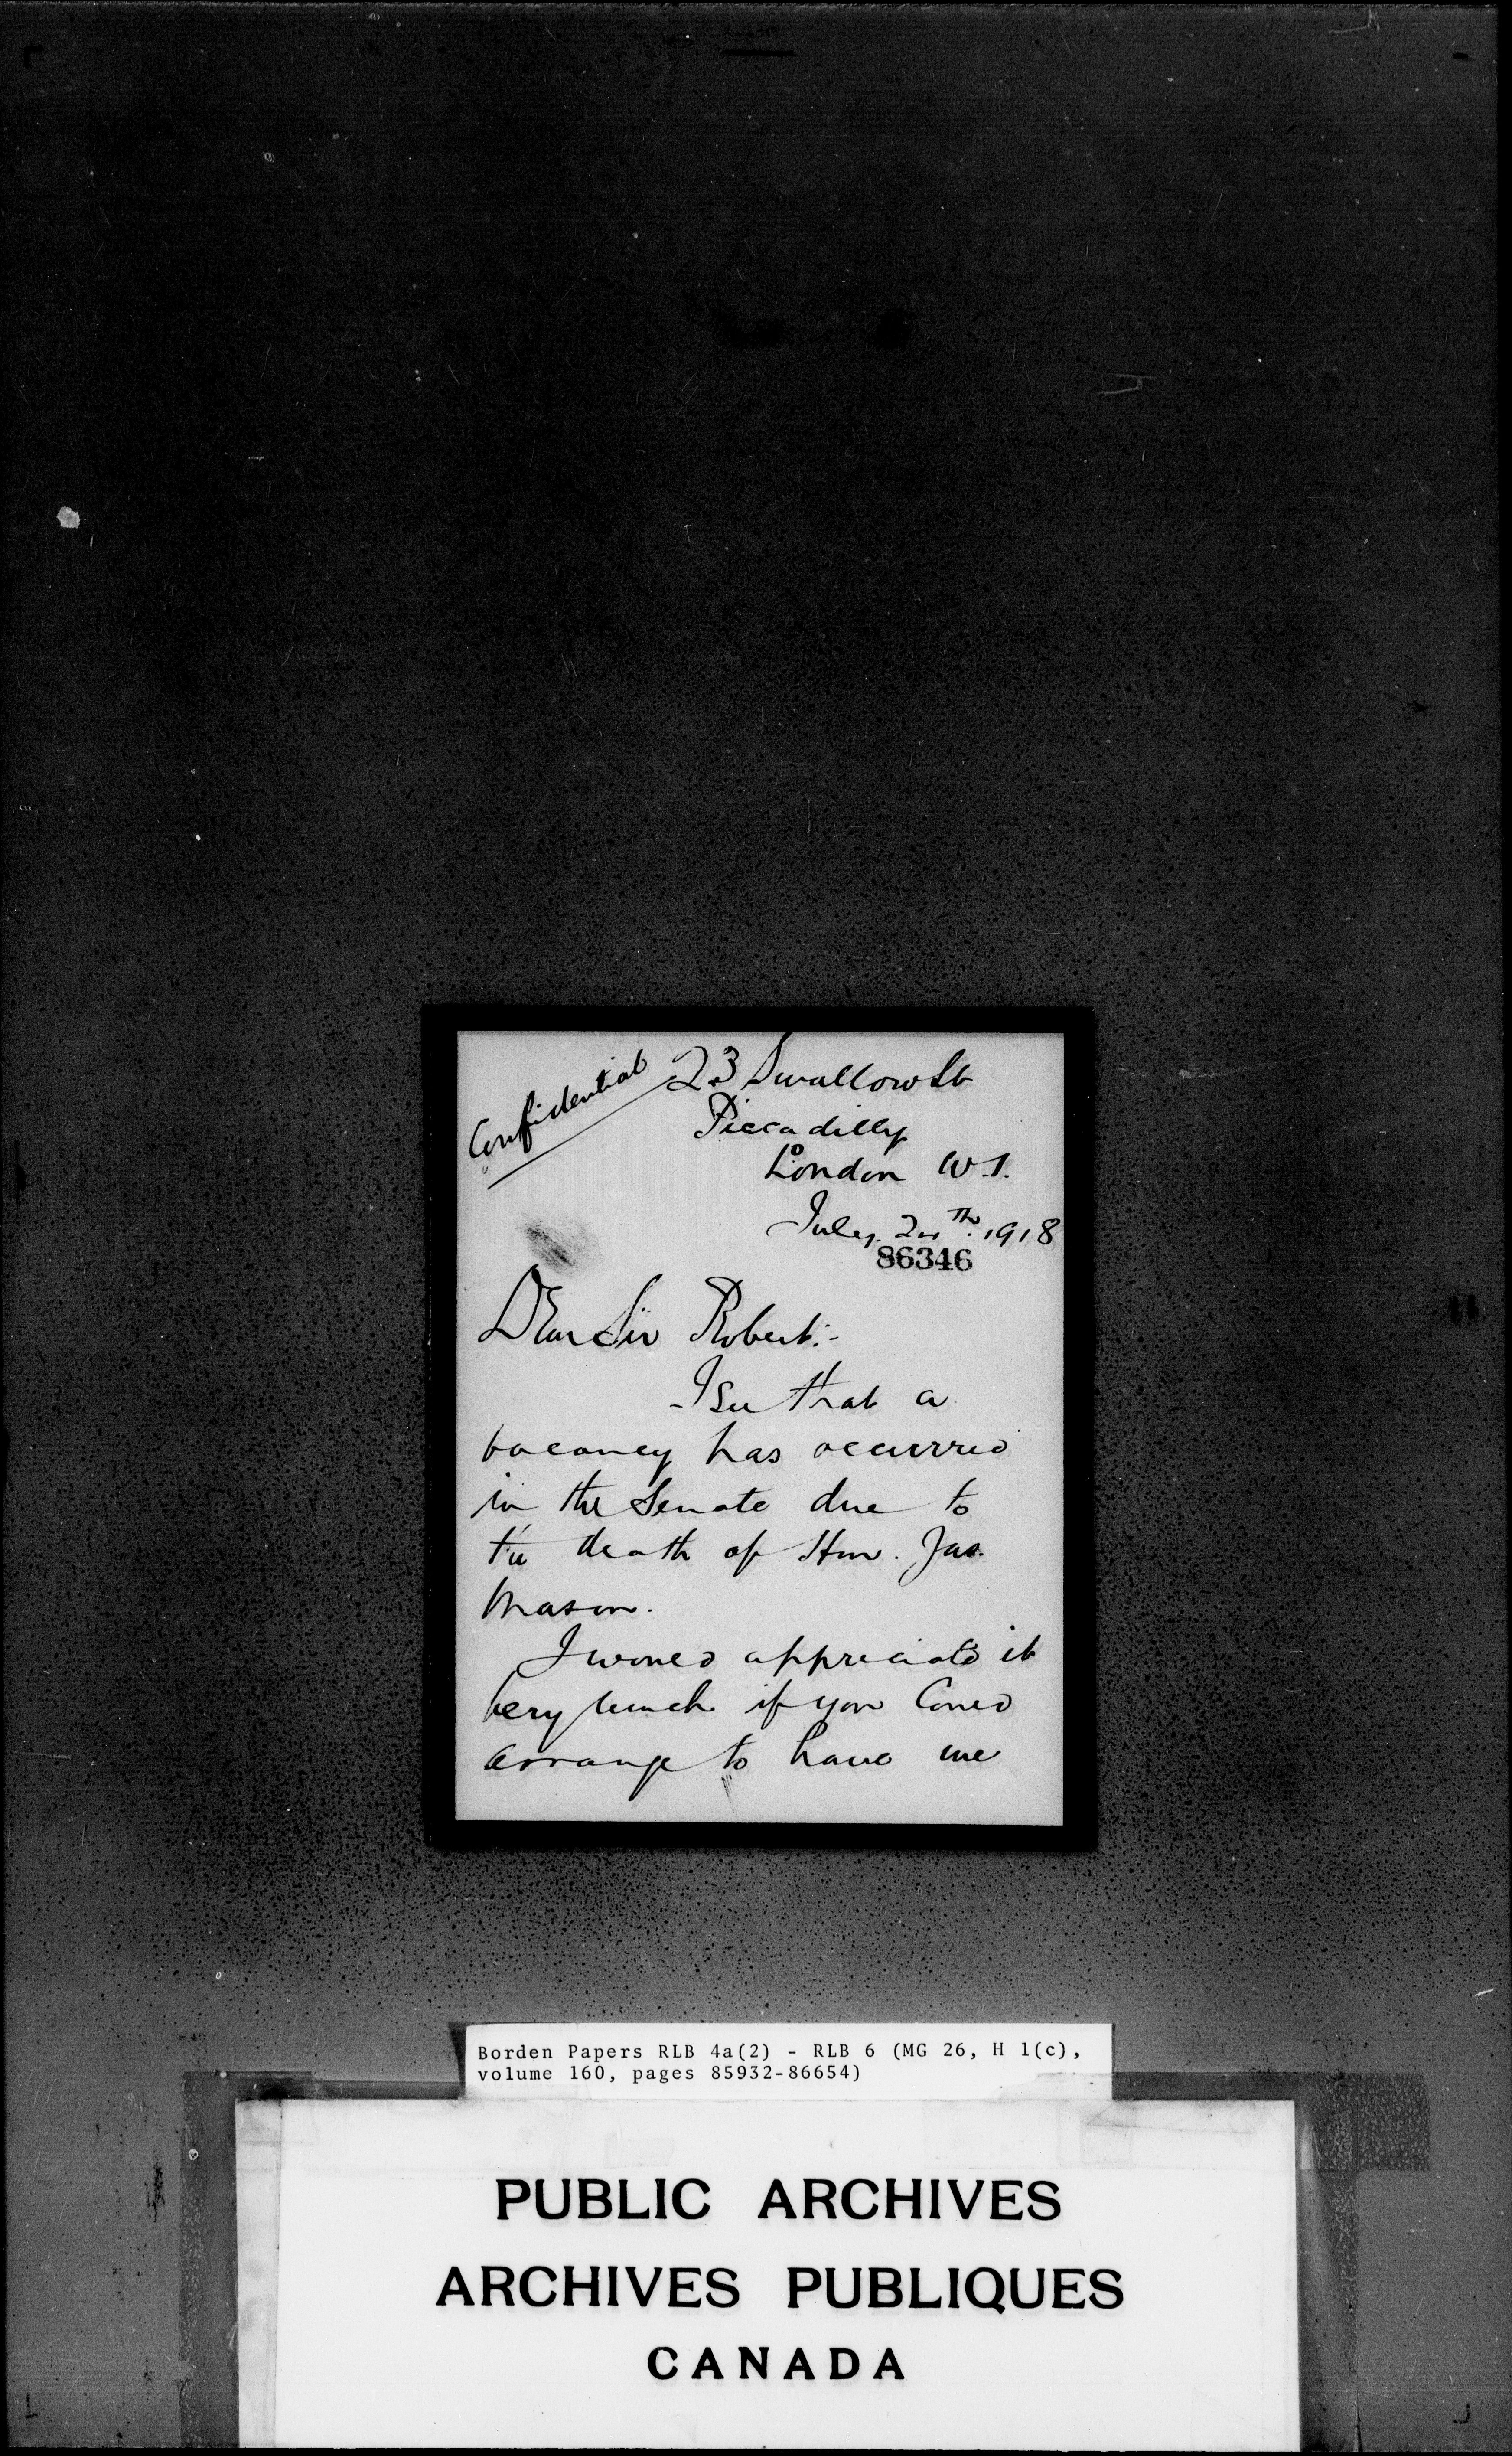 Confidential
23 Swallow St
Piccadilly
London W.1.
July 1918
86346
Dear Sir Robert:-
I see that a
vacancy has occurred
in the Senate due to
the death of Hon. Jas.
Mason.
I would appreciate it
very much if you could
arrange to have me
Borden Papers RLB 4a(2) - RLB 6 (MG 26, H 1(c),
volume 160, pages 85932-86654)
PUBLIC ARCHIVES
ARCHIVES PUBLIQUES
CANADA